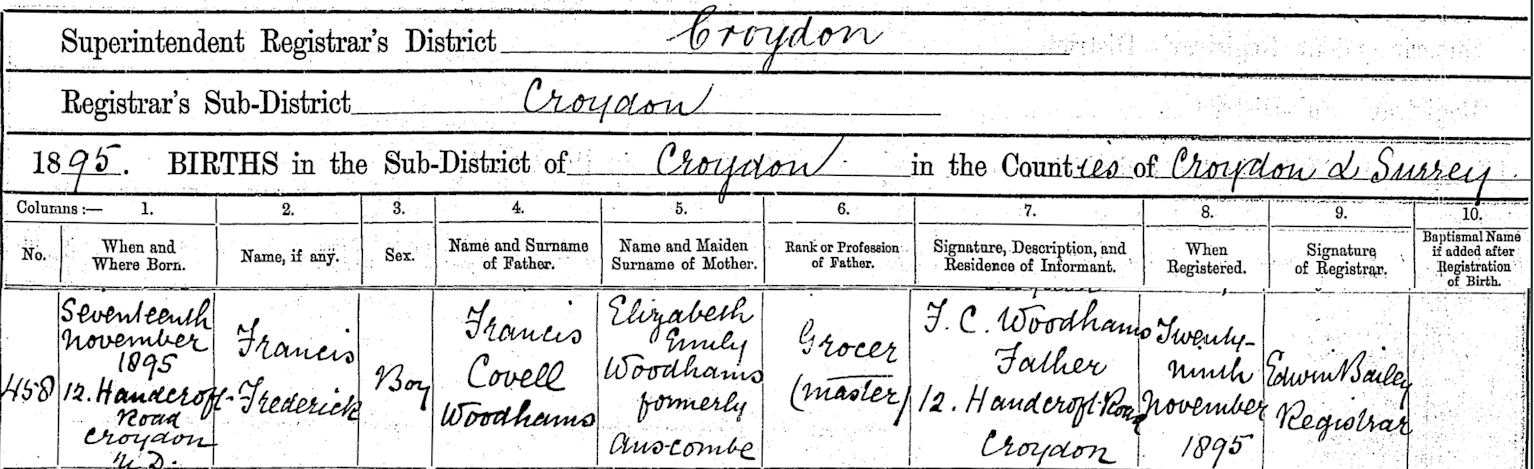 Superintendent Registrar's District Croydon
Registrar's Sub-District Croydon
1895. BIRTHS in the Sub-District of Croydon in the Counties of Croydon & Surrey
Columns:— 1. 2. 3. 4. 5. 6. 7. 8. 9. 10.
No.
When and
Where Born.
Name, if any.
Sex.
Name and Surname
of Father.
Name and Maiden
Surname of Mother.
Rank or Profession
of Father.
Signature, Description, and
Residence of Informant.
When
Registered.
Signature
of Registrar.
Baptismal Name
if added after
Registration
of Birth.
458
Seventeenth
November
1895
12. Handcroft
Road
Croydon
U.D.
Francis
Frederick
Boy
Francis
Covell
Woodhams
Elizabeth
Emily
Woodhams
formerly
Auscombe
Grocer
(master)
F. C. Woodhams
Father
12. Handcroft Road
Croydon
Twenty-
ninth
November
1895
Edwin Bailey
Registrar